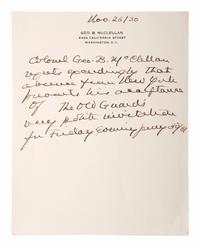 Nov. 25/30
GEO. B. McCLELLAN
CALIFORNIA STREET
WASHINGTON, D.C.
Colonel Geo. B. McClellan
regrets exceedingly that
absence from New York
prevents his acceptance
of The Old Guard's
very polite invitation
for Friday evening Jany